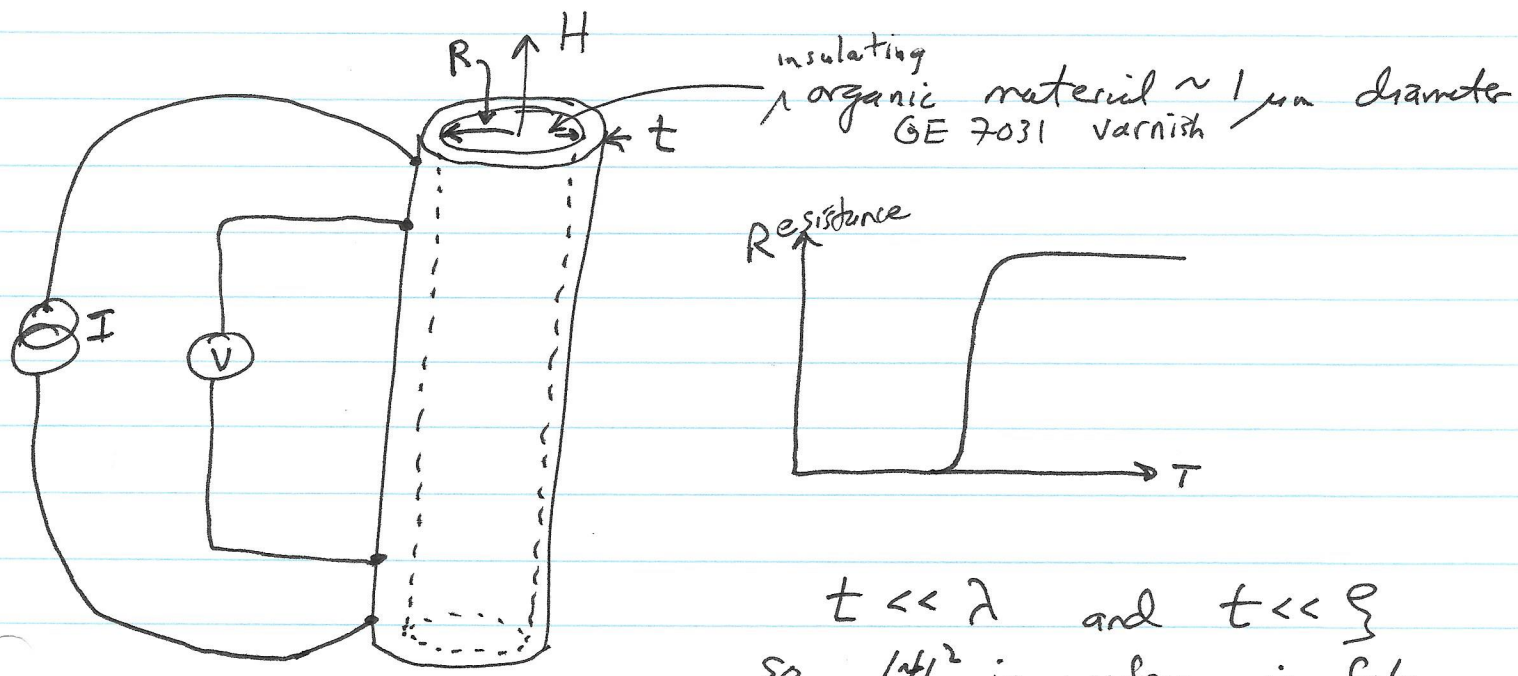 H
R
insulating
organic material ~ 1 μm diameter
GE 7031 varnish
t
Resistance
I
V
T
t << λ and t << ξ
so |ψ|² is uniform in